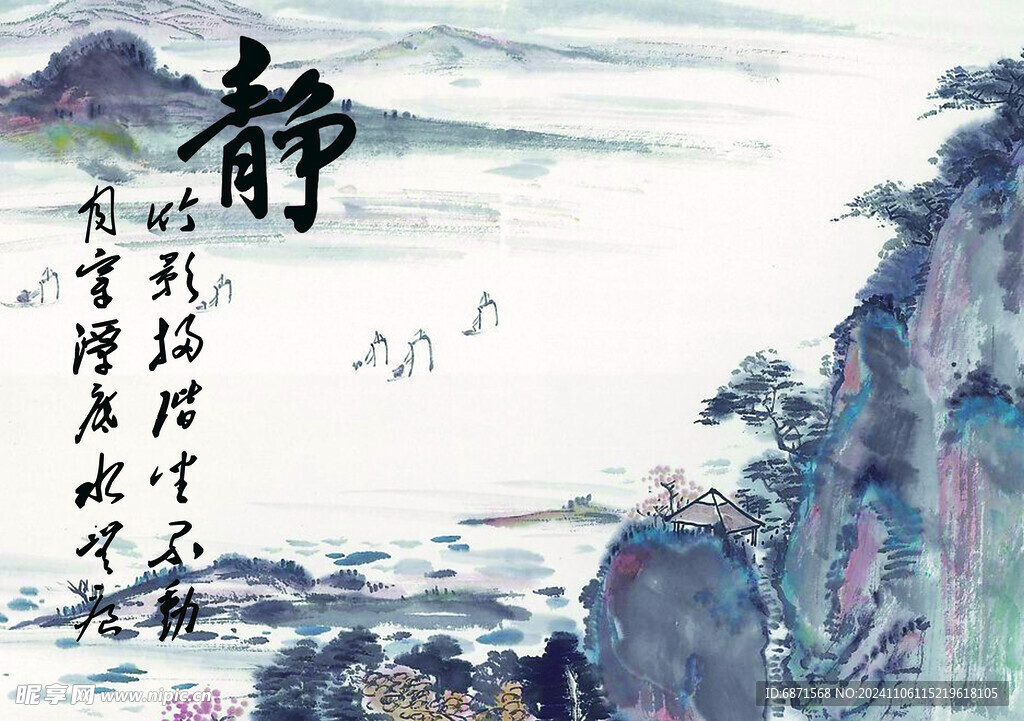 静
竹影掃階尘不動
月穿潭底水無痕
昵享网 www.nipic.cn
ID:6871568 NO:20241106115219618105